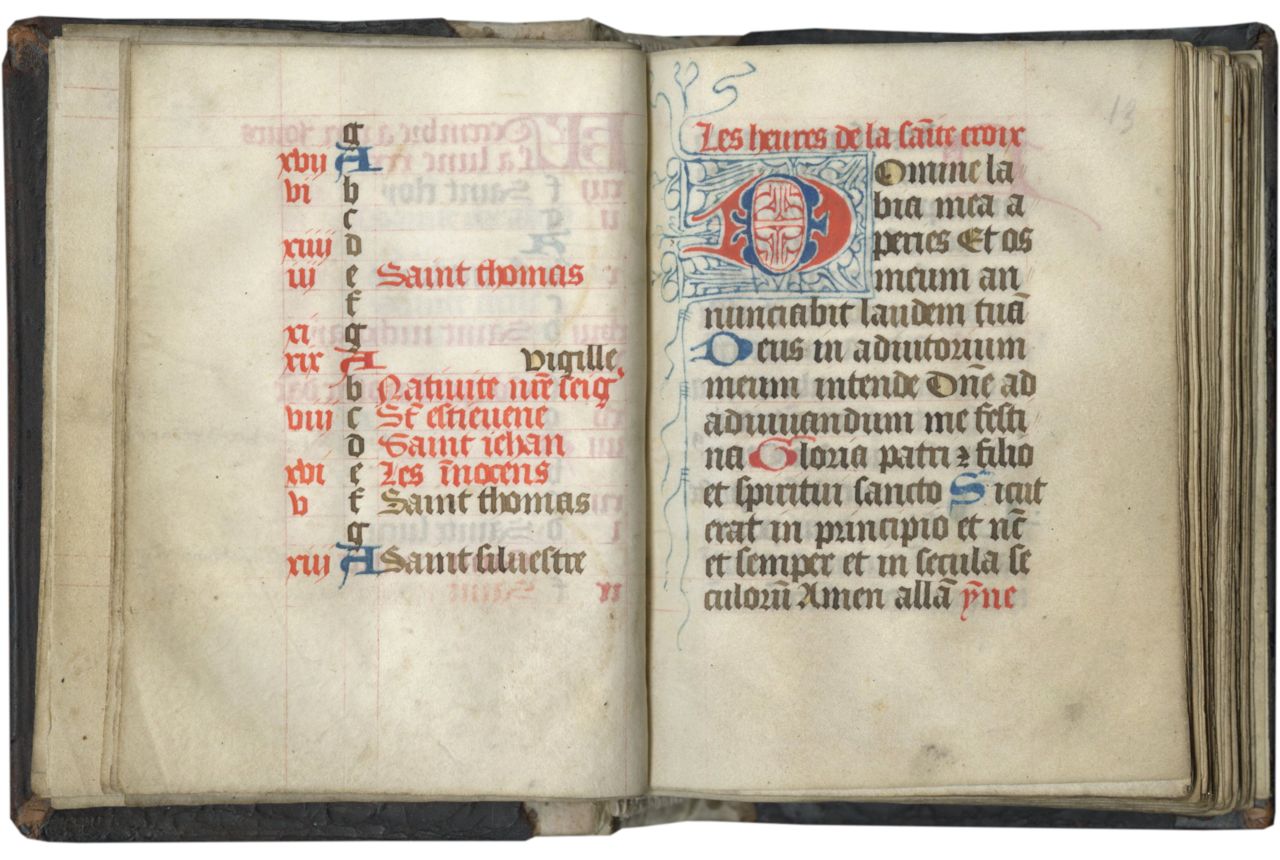 g
xvii A
vi b
c
xiiii d
iii e Saint thomas
f
xi g
xix A vigille
b Nativite nr̄e seigˀ
viii c St̄ estievene
d Saint iehan
xvi e Les īnocens
v f Saint thomas
g
xiii A Saint silvestre
13
Les heures de la sāīte croix
Domine la
bia mea a
peries Et os
meum an
nunciabit laudem tuā
Deus in adiutorium
meum intende Dn̄e ad
adiuuandum me festi
na Gloria patri ⁊ filio
et spiritui sancto Sicut
erat in principio et nc̄
et semper et in secula se
culorū Amen allā ȳne